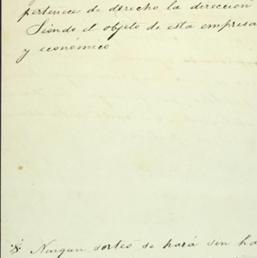 pertenece de derecho la dirección
Siendo el objeto de esta empresa
y económico
Ningun sorteo se hará sin ha